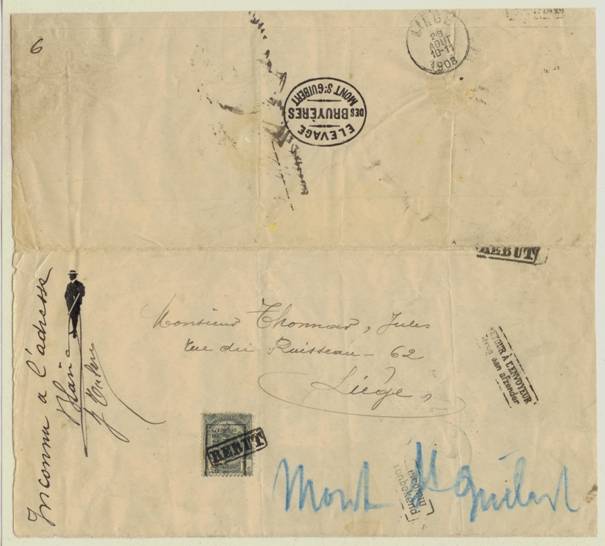 6
LIEGE
28
AOUT
10-11
1908
ELEVAGE
DES BRUYÈRES
MONT ST-GUIBERT
REBUT
Inconnu a l'adresse
Monsieur Thonnar, Jules
rue du Ruisseau - 62
Liège
A L'ENVOYEUR
aan afzender
REBUT
Mont St Guibert